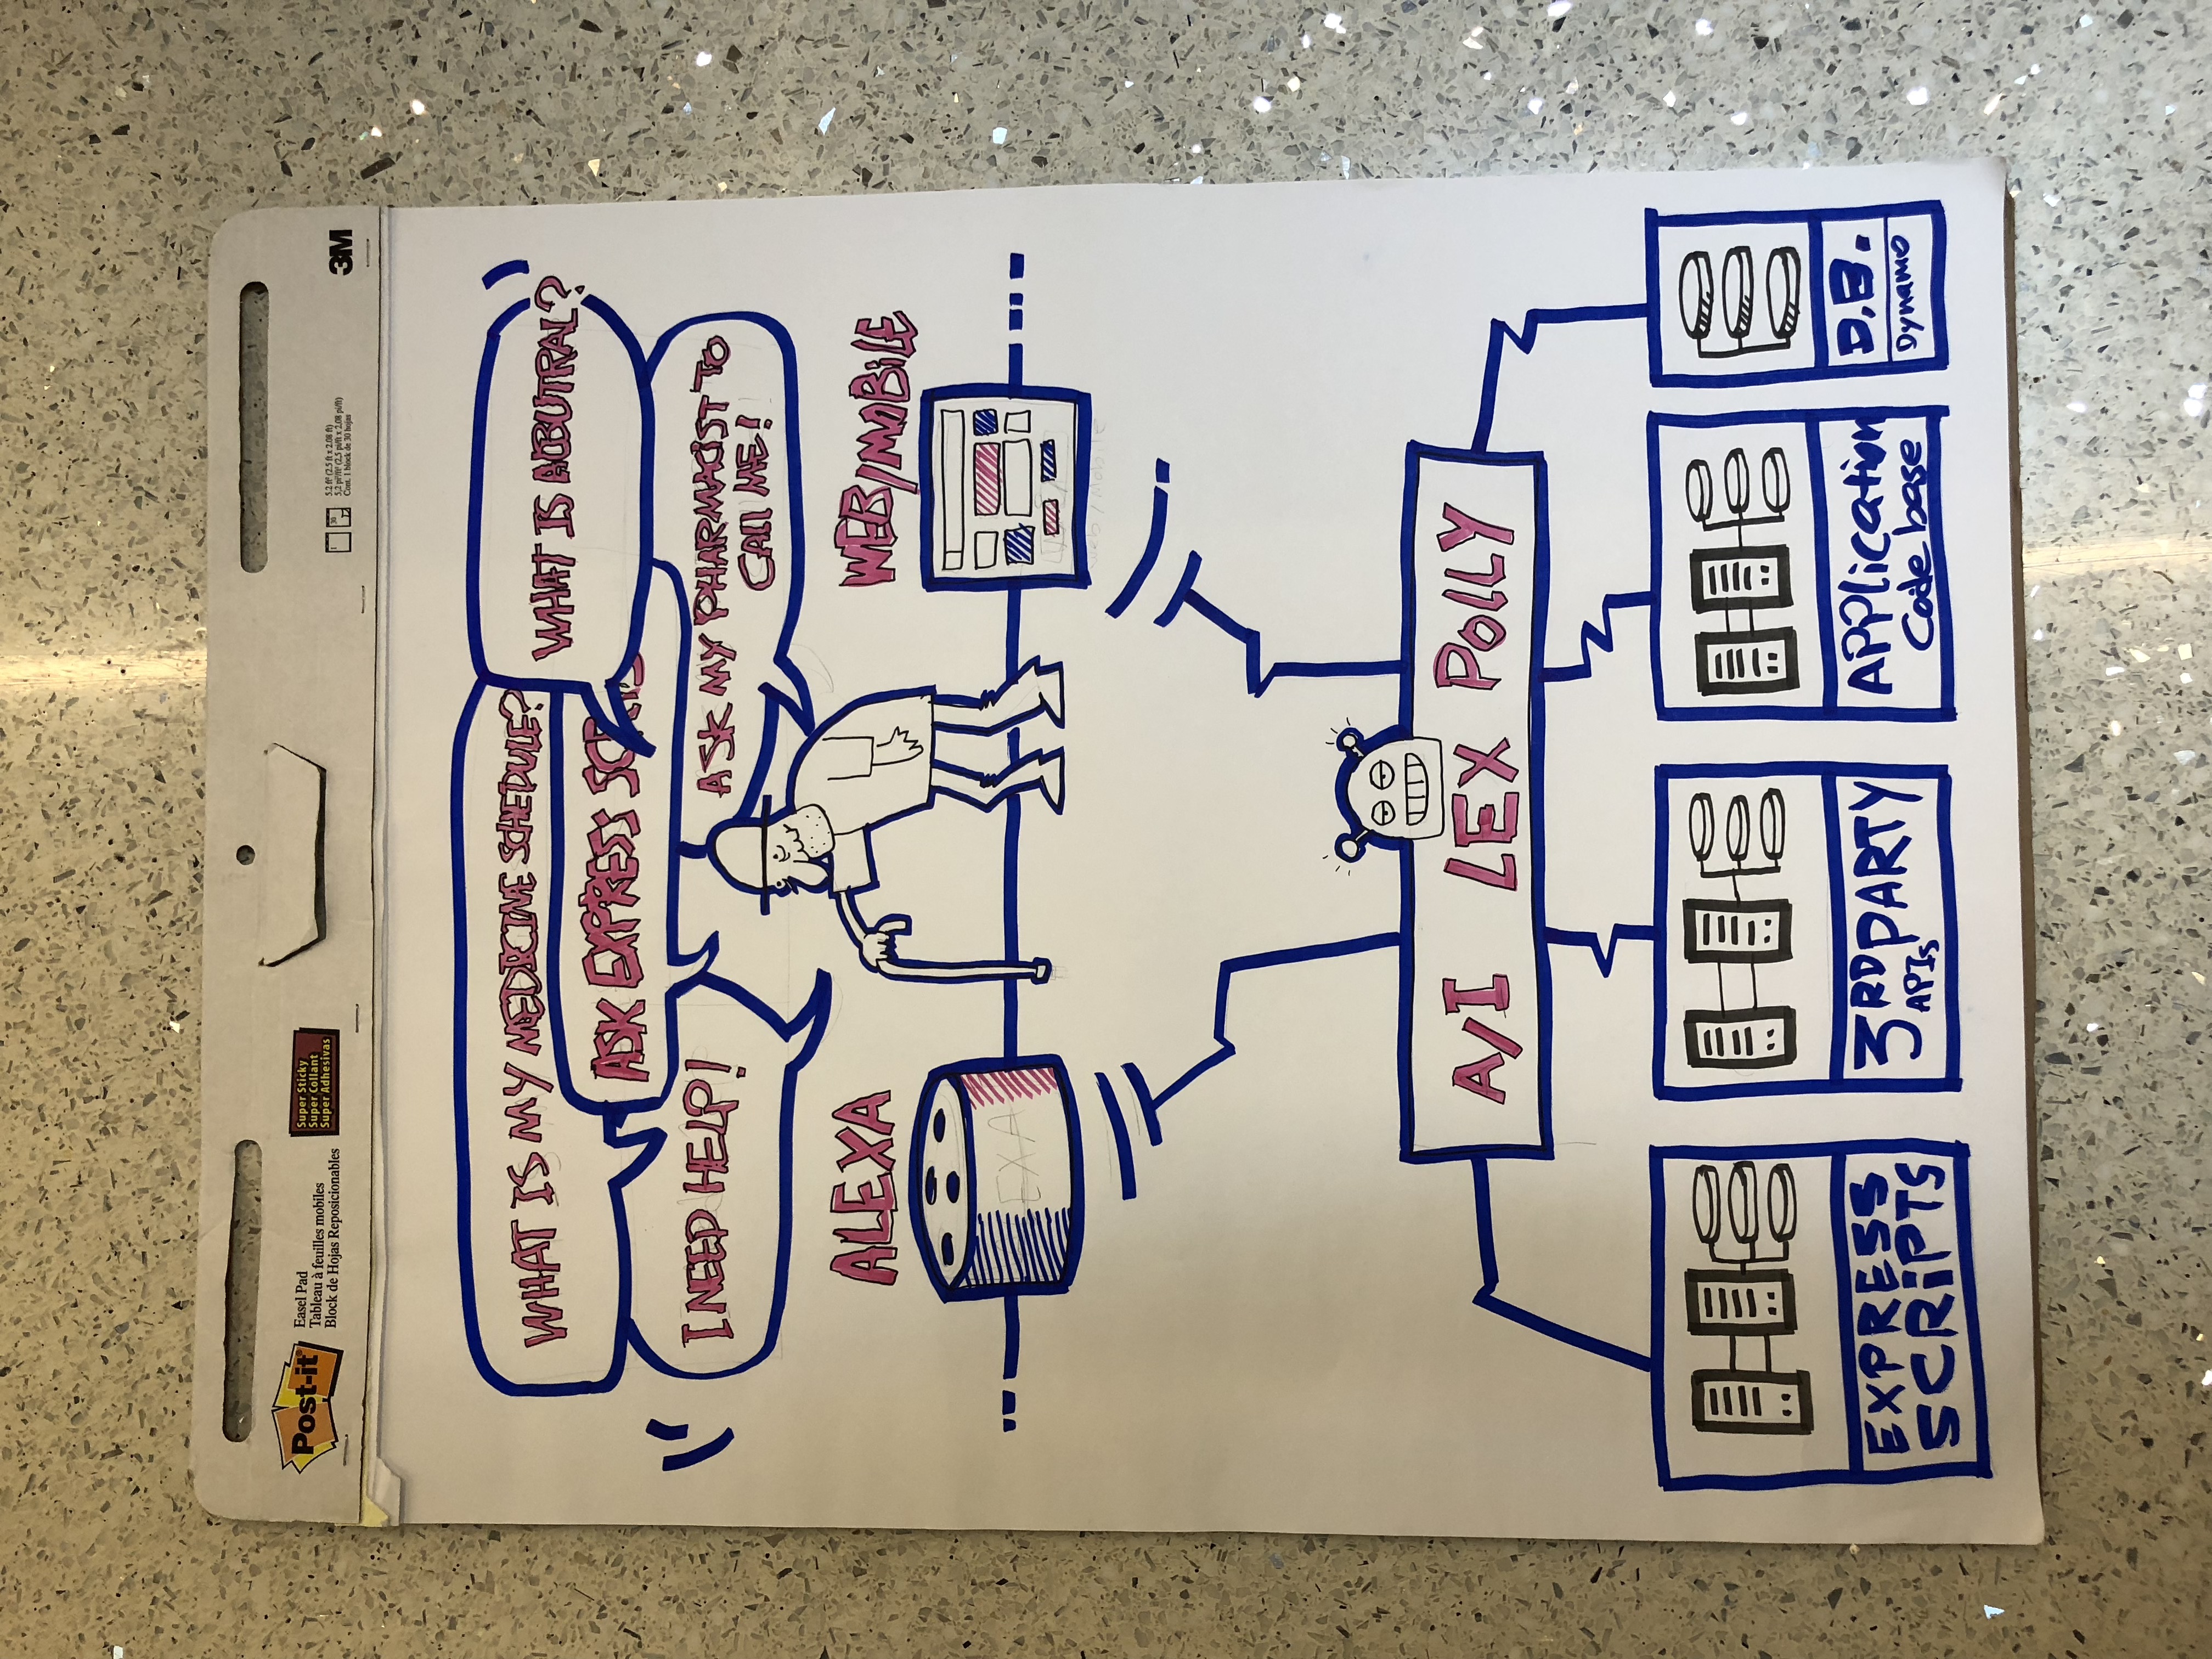 Post-it
Easel Pad
Tableau à feuilles mobiles
Block de Hojas Reposicionables
Super Sticky
Super Collant
Super Adhesivas
5.2 ft² (2.5 ft x 2.08 ft)
5,2 pi²/ft² (2,5 pi/ft x 2,08 pi/ft)
Cont. 1 block de 30 hojas
3M
WHAT IS MY MEDICINE SCHEDULE?
WHAT IS ALBUTRAL?
ASK EXPRESS
I NEED HELP!
ASK MY PHARMACIST TO
CAll ME!
ALEXA
WEB/MOBiLE
EXA
Web/Mobile
A/I LEX POLLY
EXPRESS
SCRiPTS
3RD PARTY
APIs
APPlication
Code base
D.B.
Dynamo